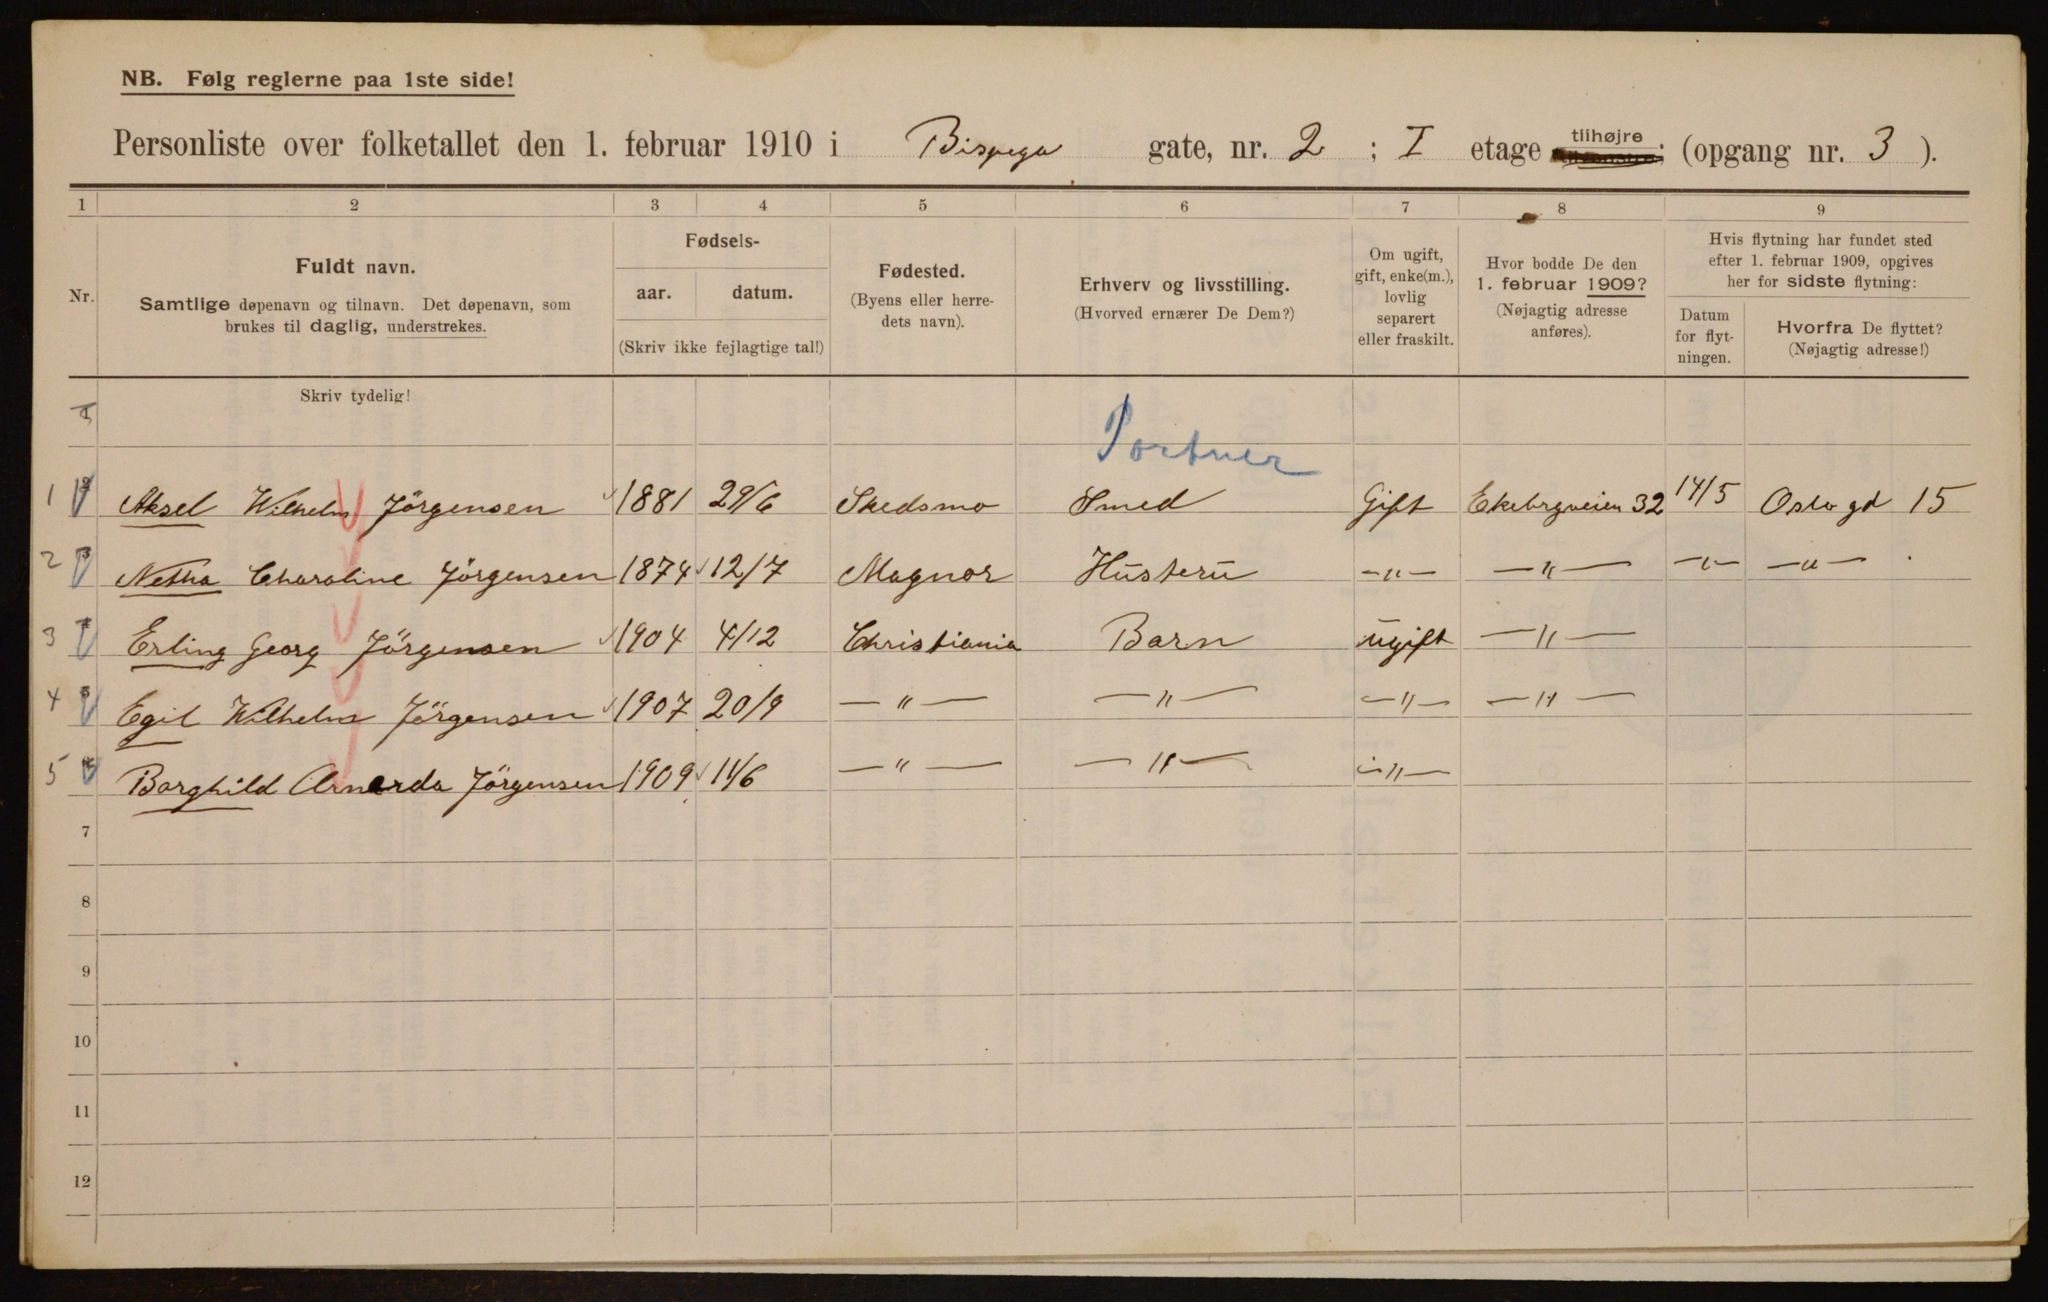 NB. Følg reglerne paa 1ste side!
Personliste over folketallet den 1. februar 1910 i Bispega gate, nr. 2 ; I etage tilhøjre (opgang nr. 3 ).
1 2 3 4 5 6 7 8 9
Nr.
Fuldt navn.
Samtlige døpenavn og tilnavn. Det døpenavn, som
brukes til daglig, understrekes.
Fødsels-
aar. datum.
(Skriv ikke fejlagtige tal!)
Fødested.
(Byens eller herre-
dets navn).
Erhverv og livsstilling.
(Hvorved ernærer De Dem?)
Om ugift,
gift, enke(m.),
lovlig
separert
eller fraskilt.
Hvor bodde De den
1. februar 1909?
(Nøjagtig adresse
anføres).
Hvis flytning har fundet sted
efter 1. februar 1909, opgives
her for sidste flytning:
Datum
for flyt-
ningen.
Hvorfra De flyttet?
(Nøjagtig adresse!)
Skriv tydelig!
Portner
1 Aksel Wilhelm Jörgensen 1881 29/6 Skedsmo Smed Gift Ekebrgveien 32 14/5 Oslo gd 15
2 Netha Charoline Jörgensen 1874 12/7 Magnor Hüsterü -"- -"- -"- -"-
3 Erling Georg Jörgensen 1904 4/12 Christiania Barn ügift -"-
4 Egil Wilhelm Jörgensen 1907 20/9 -"- -"- -"- -"-
5 Borghild Jörgensen 1909 -"- -"- -"-
7
8
9
10
11
12